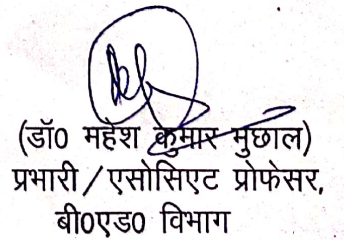 (डॉ0 महेश कुमार मुछाल)
प्रभारी/एसोसिएट प्रोफेसर,
बी0एड0 विभाग